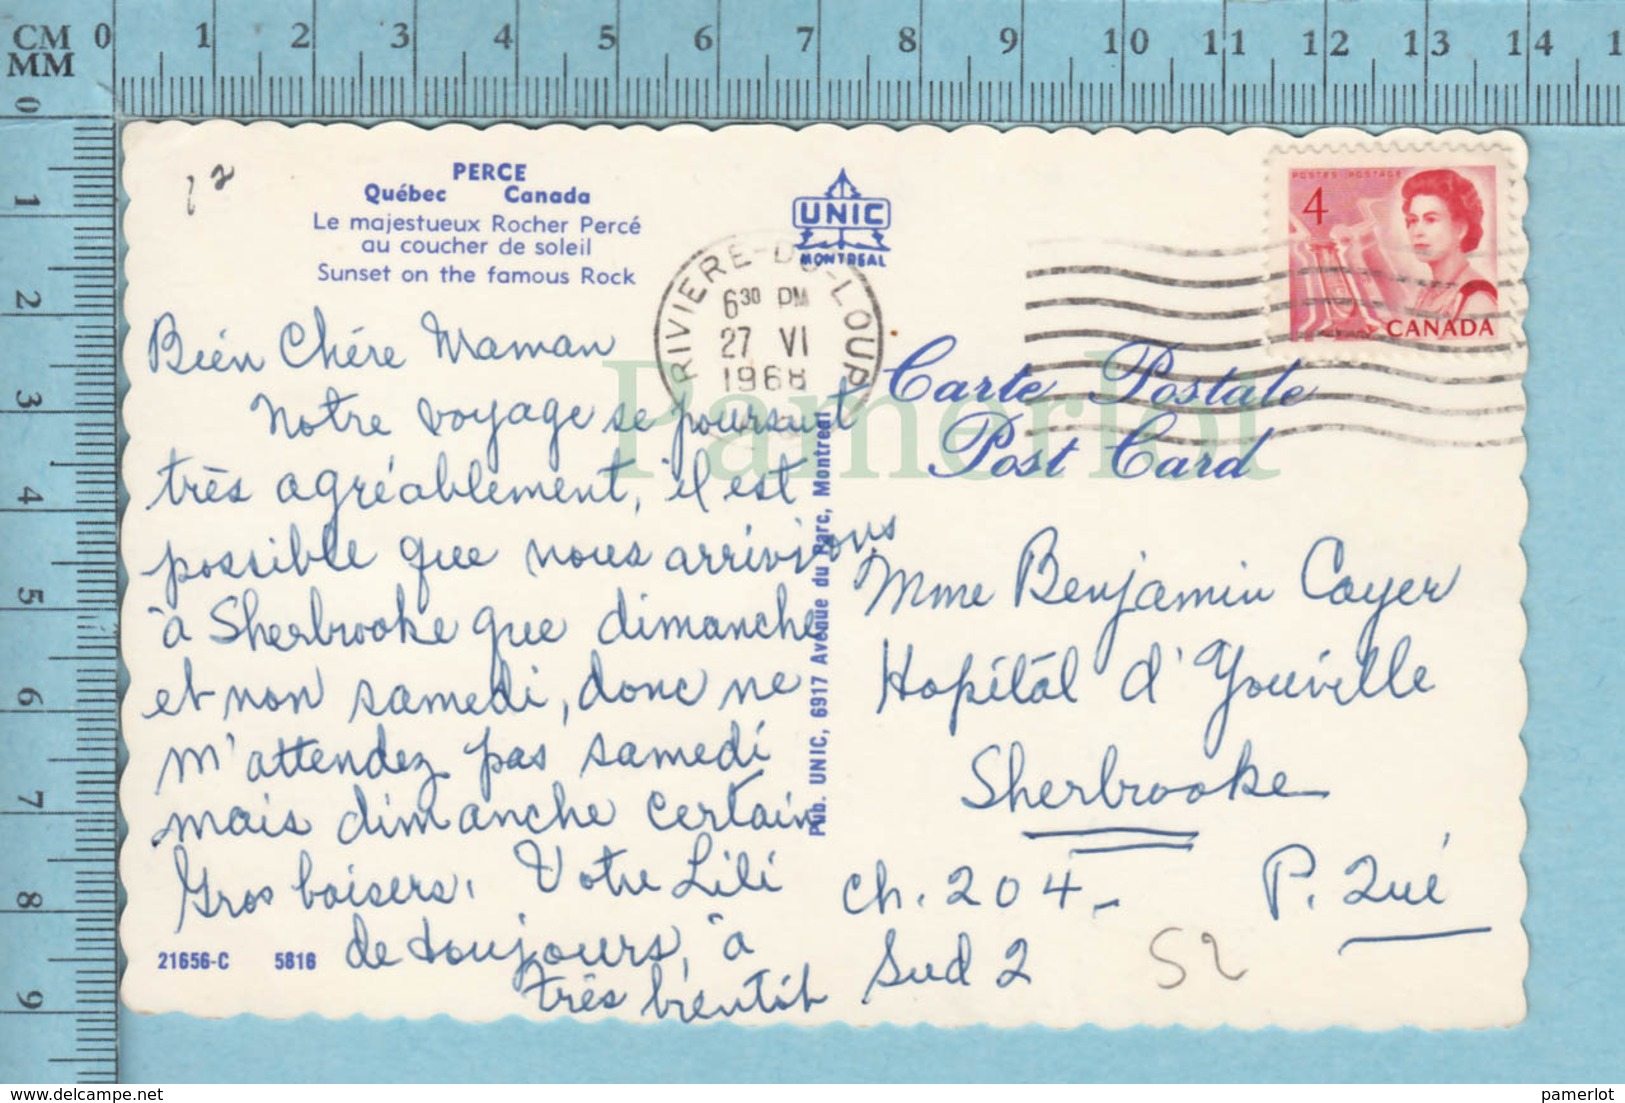 CM 0 1 2 3 4 5 6 7 8 9 10 11 12 13 14 1
MM
0 1 2 3 4 5 6 7 8 9
12
PERCE
Québec Canada
Le majestueux Rocher Percé
au coucher de soleil
Sunset on the famous Rock
UNIC
MONTREAL
RIVIERE-DU-LOUP
6 30 PM
27 VI
1968
POSTES POSTAGE
4
CANADA
Carte Postale
Post Card
Pamerlot
Bien Chère Maman
Notre voyage se poursuit
très agréablement, il est
possible que nous arrivions
à Sherbrooke que dimanche
et non samedi, donc ne
m'attendez pas samedi
mais dimanche certain
Gros baisers. Votre Lili
de toujours, à
très bientôt
21656-C 5816
Pub. UNIC, 6917 Avenue du Parc, Montreal
Mme Benjamin Cayer
Hopitâl d'Youville
Sherbrooke
ch. 204- P. Qué
Sud 2
52
pamerlot